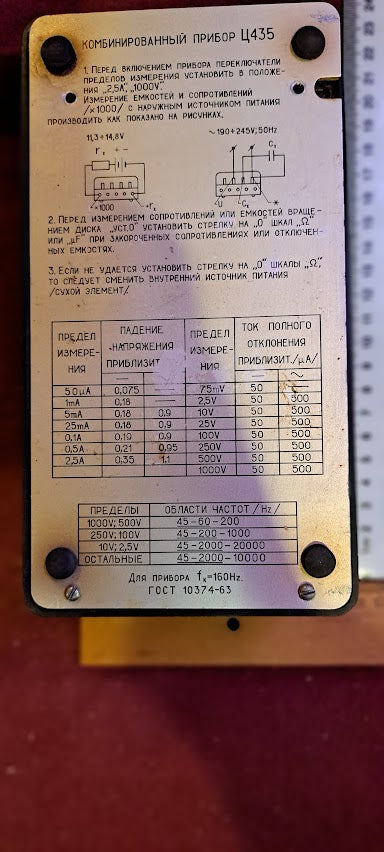 КОМБИНИРОВАННЫЙ ПРИБОР Ц435
1. ПЕРЕД ВКЛЮЧЕНИЕМ ПРИБОРА ПЕРЕКЛЮЧАТЕЛИ
ПРЕДЕЛОВ ИЗМЕРЕНИЯ УСТАНОВИТЬ В ПОЛОЖЕ-
НИЯ „2,5А", „1000V".
ИЗМЕРЕНИЕ ЕМКОСТЕЙ И СОПРОТИВЛЕНИЙ
/×1000/ С НАРУЖНЫМ ИСТОЧНИКОМ ПИТАНИЯ
ПРОИЗВОДИТЬ КАК ПОКАЗАНО НА РИСУНКАХ.
11,3÷14,8V ~190÷245V; 50Hz
rₓ - + Cₓ
×1000 -rₓ U Cₓ *
2. ПЕРЕД ИЗМЕРЕНИЕМ СОПРОТИВЛЕНИЙ ИЛИ ЕМКОСТЕЙ ВРАЩЕ-
НИЕМ ДИСКА „УСТ.0" УСТАНОВИТЬ СТРЕЛКУ НА „0" ШКАЛ „Ω"
ИЛИ „µF" ПРИ ЗАКОРОЧЕННЫХ СОПРОТИВЛЕНИЯХ ИЛИ ОТКЛЮЧЕН-
НЫХ ЕМКОСТЯХ.
3. ЕСЛИ НЕ УДАЕТСЯ УСТАНОВИТЬ СТРЕЛКУ НА „0" ШКАЛЫ „Ω",
ТО СЛЕДУЕТ СМЕНИТЬ ВНУТРЕННИЙ ИСТОЧНИК ПИТАНИЯ
/СУХОЙ ЭЛЕМЕНТ/
ПРЕДЕЛ ИЗМЕРЕ- НИЯ ПАДЕНИЕ НАПРЯЖЕНИЯ ПРИБЛИЗИТ. ПРЕДЕЛ ИЗМЕРЕ- НИЯ ТОК ПОЛНОГО ОТКЛОНЕНИЯ ПРИБЛИЗИТ. /µA/
— ~ — ~
50µA 0,075 — 75mV 50 —
1mA 0,18 — 2,5V 50 500
5mA 0,18 0,9 10V 50 500
25mA 0,18 0,9 25V 50 500
0,1A 0,19 0,9 100V 50 500
0,5A 0,21 0,95 250V 50 500
2,5A 0,35 1,1 500V 50 500
1000V 50 500
ПРЕДЕЛЫ ОБЛАСТИ ЧАСТОТ /Hz/
1000V; 500V 45-60-200
250V; 100V 45-200-1000
10V; 2,5V 45-2000-20000
ОСТАЛЬНЫЕ 45-2000-10000
ДЛЯ ПРИБОРА fₓ=160Hz.
ГОСТ 10374-63